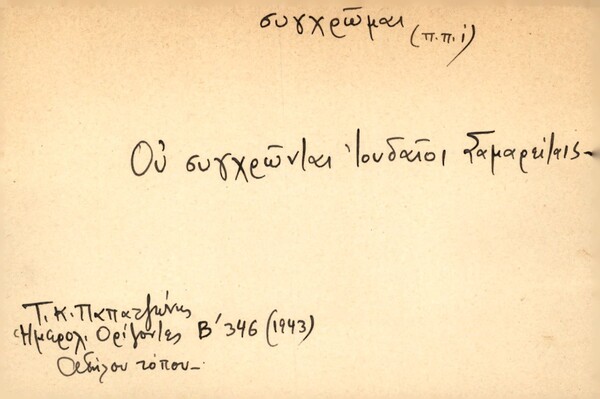 συγχρῶμαι (π.π.ί)
Οὐ συγχρῶνται Ἰουδαῖοι Σαμαρείταις-
Τ. Κ. Παπατζώνης
Ἡμερολ. Ὁρίζοντες Β΄ 346 (1943)
Ἀδήλου τόπου-